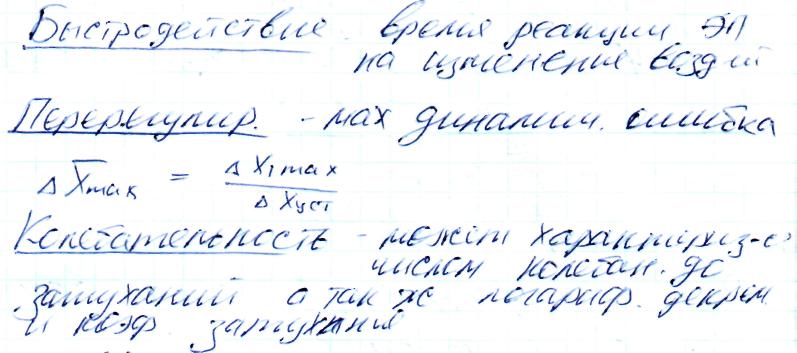 Быстродействие время реакции ЭП
на изменение воздей
Перерегулир. - max динамич. ошибка
Δ X̅max = Δ X1max / Δ Xуст
Колебательность - может характериз-с
числом колебан. до
затуханий а так же логариф. декрем
и коэф. затухания